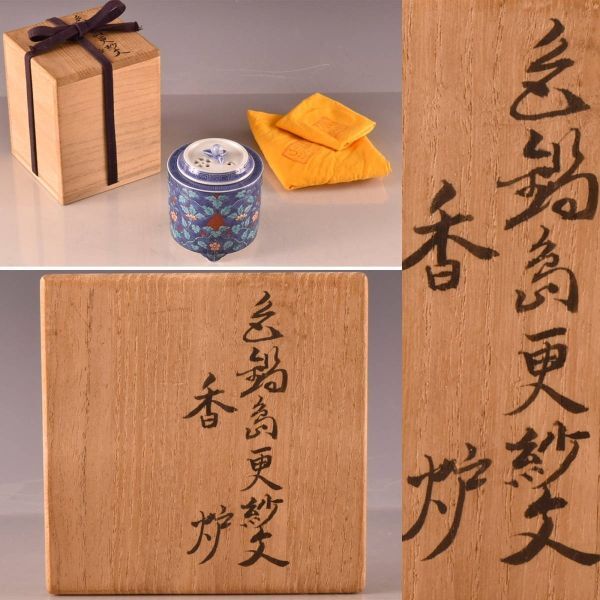 色鍋島更紗文
香炉
色鍋島更紗文
香炉